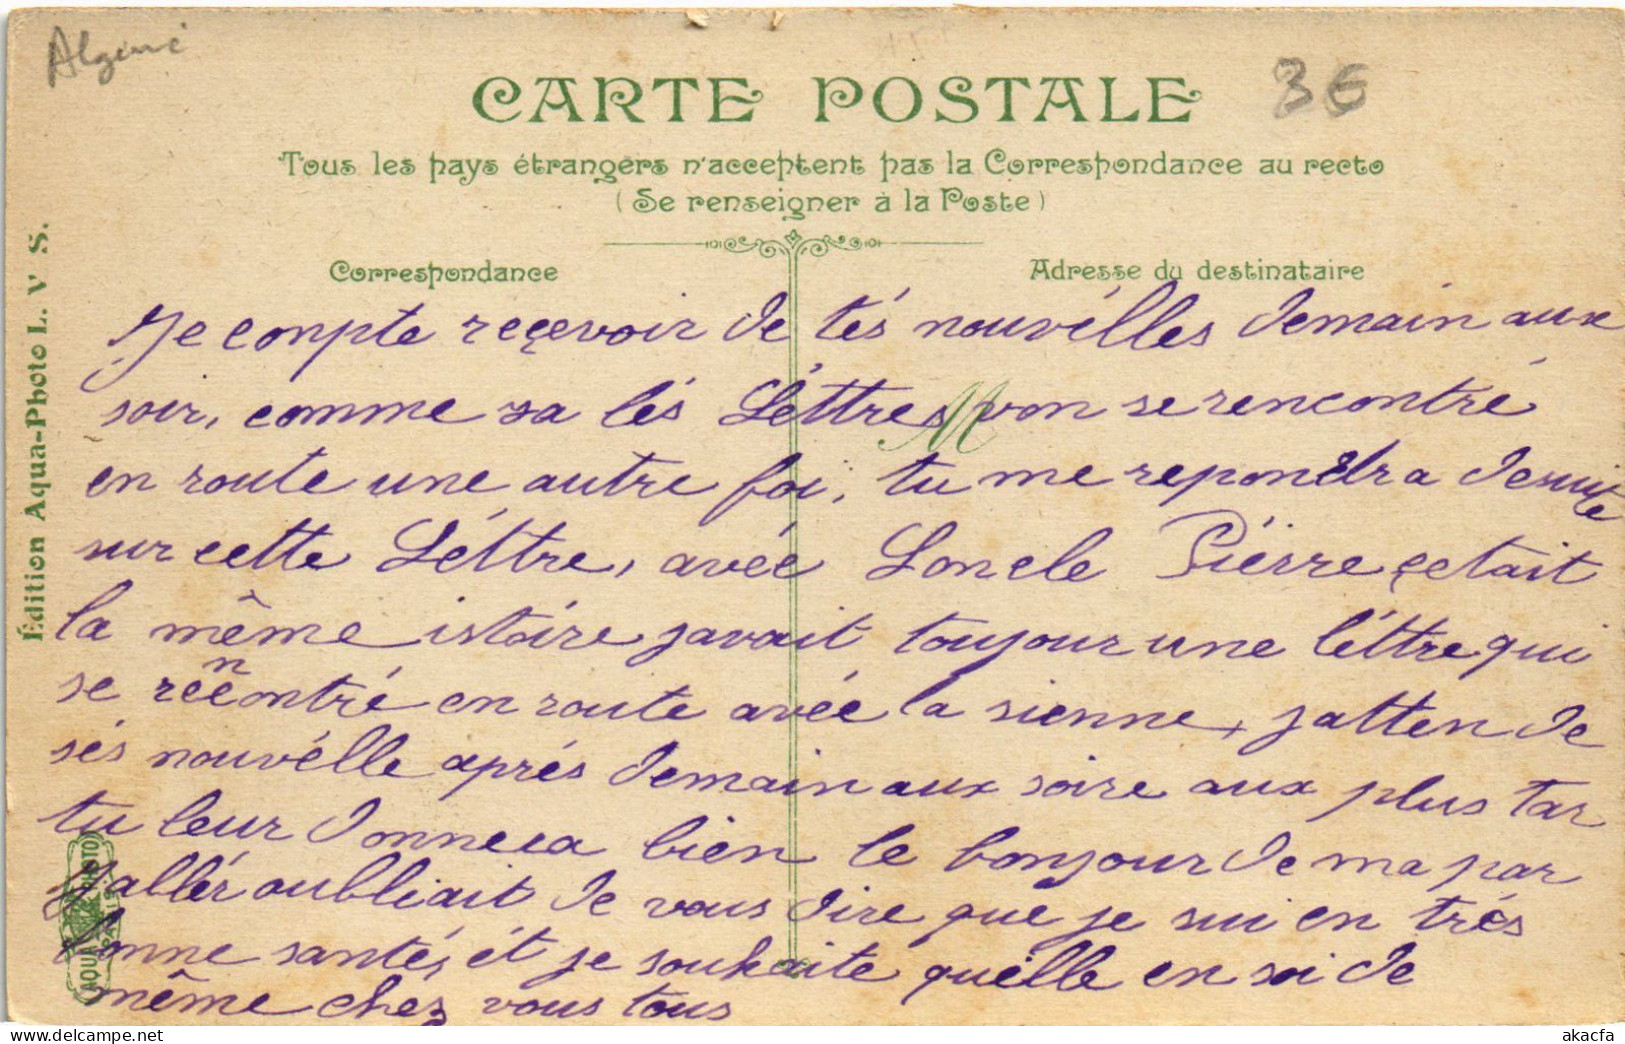 Algérie
3€
CARTE POSTALE
Tous les pays étrangers n'acceptent pas la Correspondance au recto
(Se renseigner à la Poste)
Correspondance
Adresse du destinataire
Édition Aqua-Photo L. V S.
M
Je conpte reçevoir de tés nouvélles demain aux
soir, comme sa lés Léttres von se rencontré
en route une autre foi, tu me repondra desuite
sur cette Léttre, avéc Loncle Piérre çetait
la même istoire javait toujour une léttre qui
se rencontré en route avée la sienne, jatten de
sés nouvélle aprés demain aux soire aux plus tar
tu leur donnera bien le bonjour de ma par
Jallér oubliait de vous dire que je sui en trés
bonne santé, ét je souhaite quélle en soi de
même chez vous tous
AQUA PHOTO
PARIS
akacfa